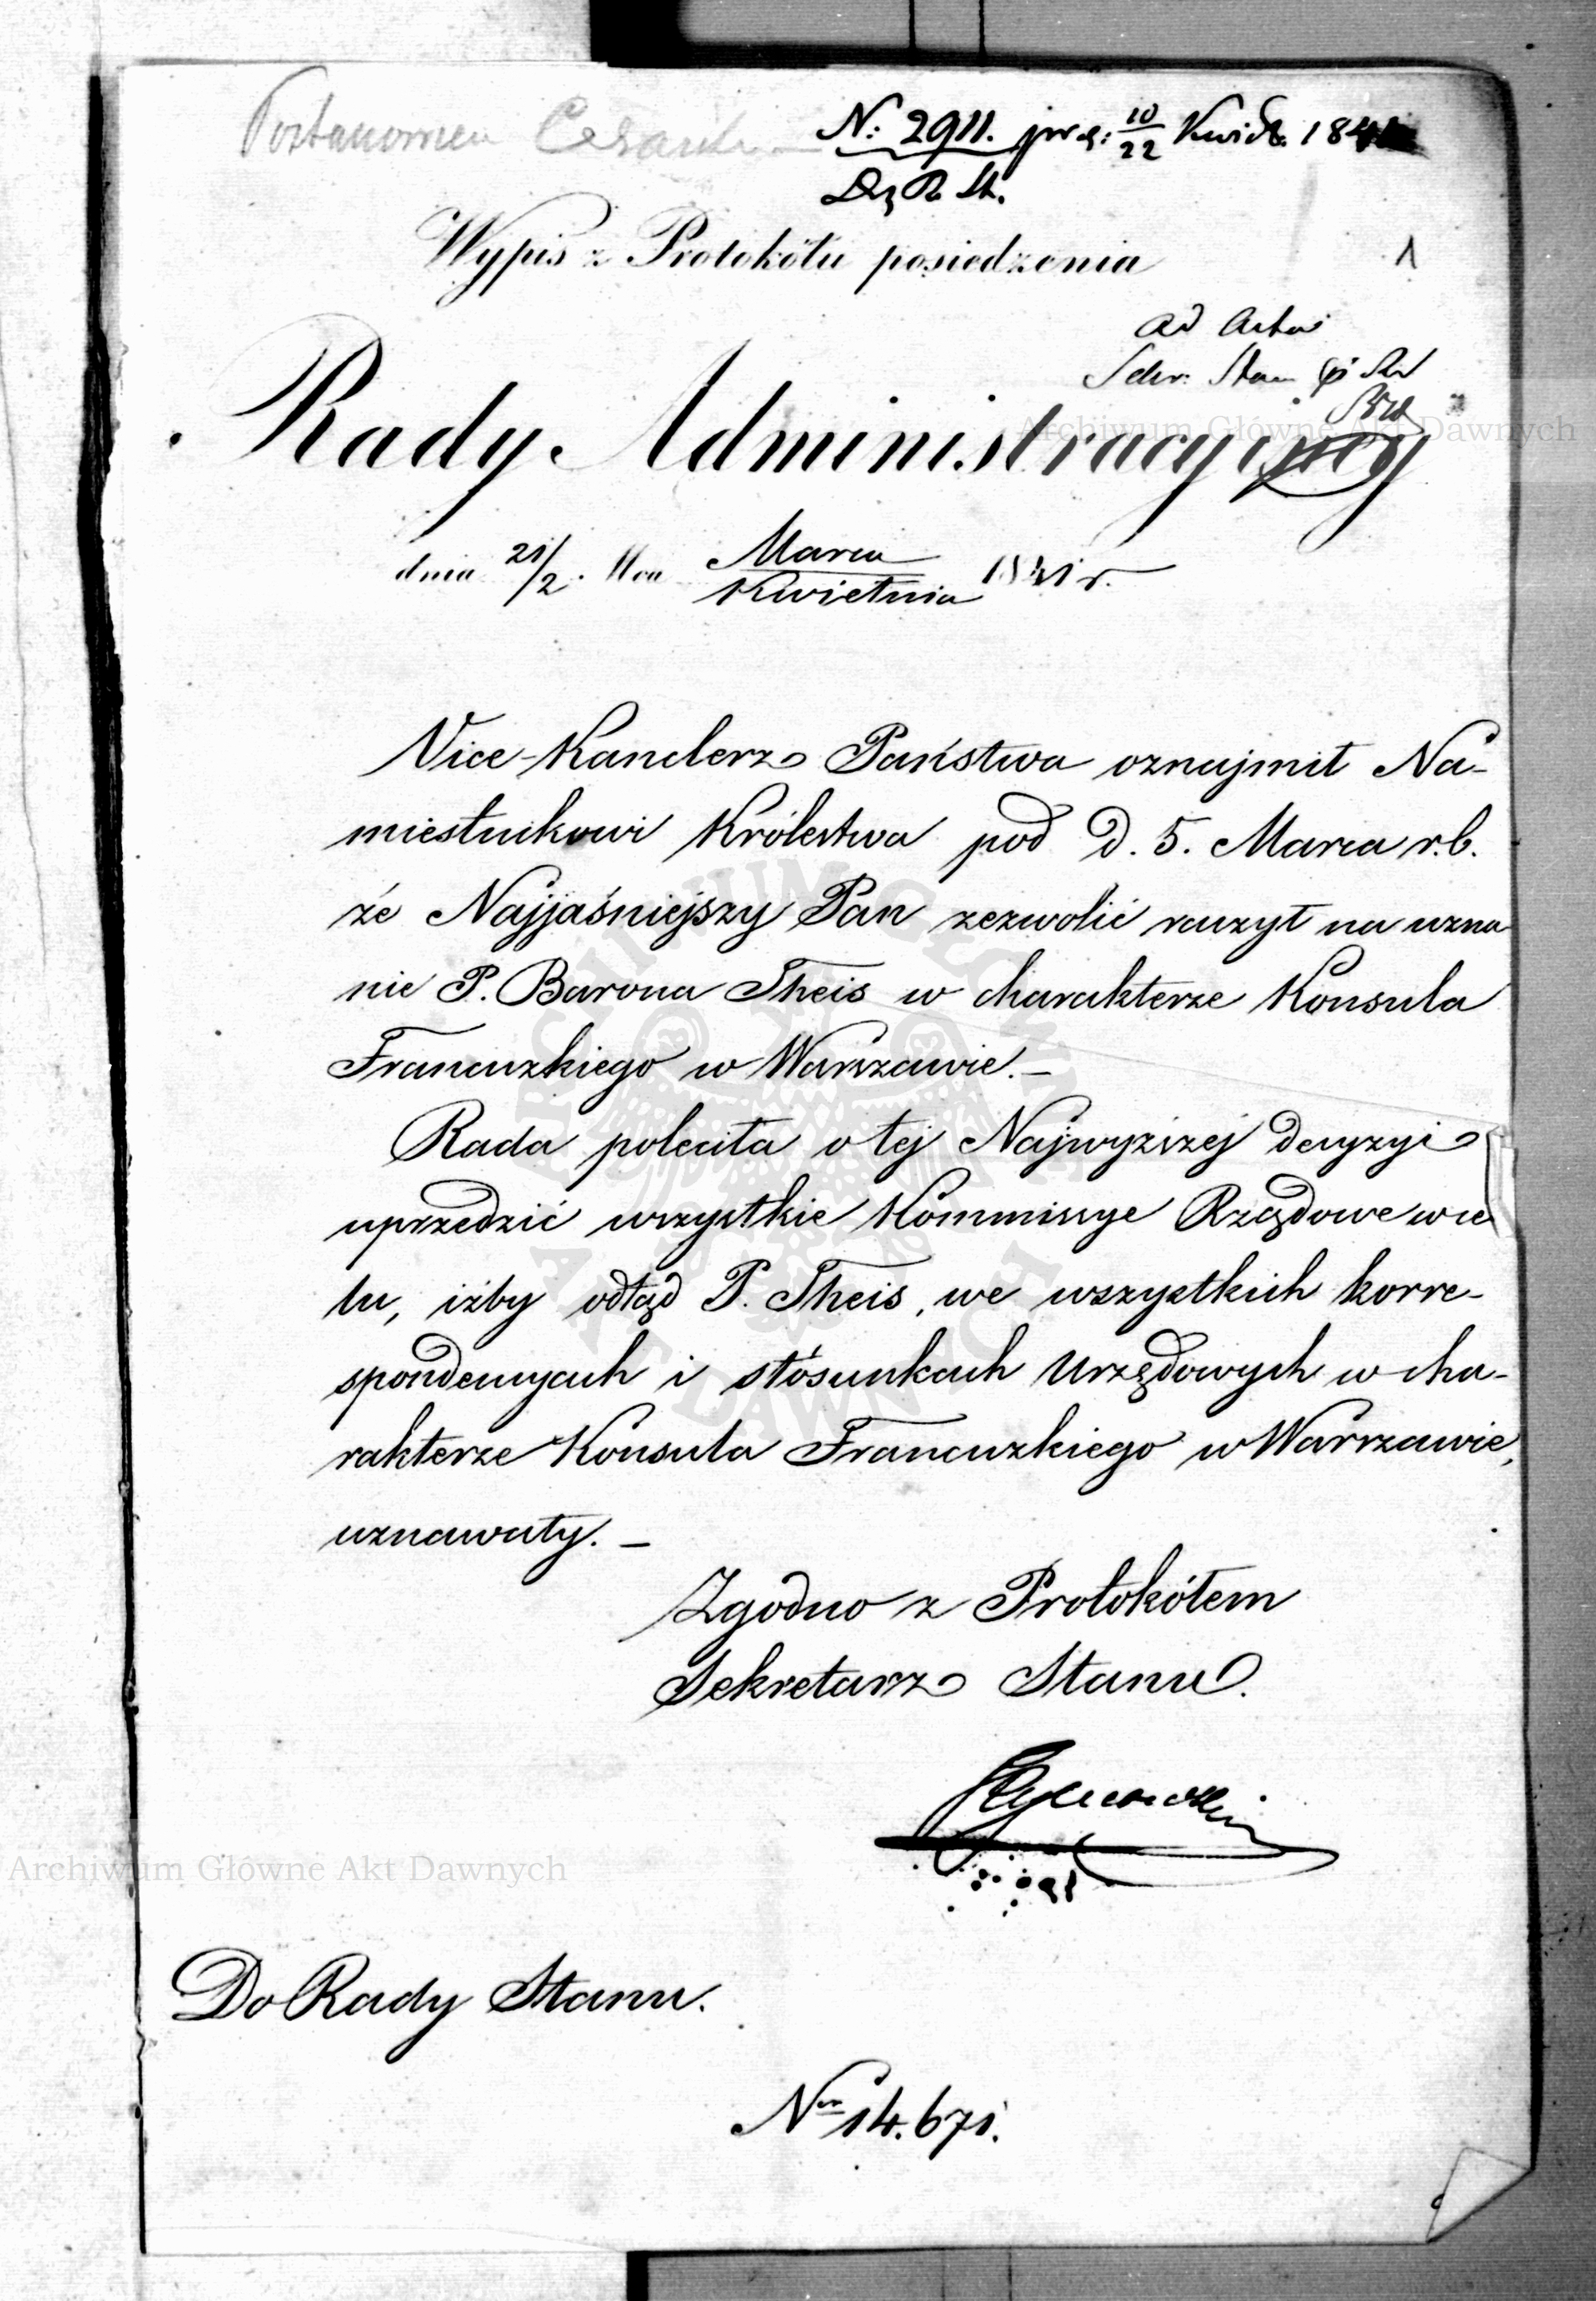 N: 2911. 10/22 Kwiet. 184
Wypis z Protokółu posiedzenia
1
ad Acta
Rady Administracyjnej
Archiwum Główne Akt Dawnych
dnia 21/2. Mca Marca/Kwietnia 1841 r.
Vice-Kanclerz Państwa oznajmił Na-
miestnikowi Królestwa pod d. 5. Marca r.b.
że Najjaśniejszy Pan zezwolić raczył na uzna
nie P. Barona Theis w charakterze Konsula
Francuzkiego w Warszawie.—
Rada poleciła o tej Najwyższej decyzyi
uprzedzić wszystkie Kommissye Rządowe w ce
lu, iżby odtąd P. Theis, we wszystkich korre-
spondencyach i stósunkach Urzędowych w cha-
rakterze Konsula Francuzkiego w Warszawie,
uznawały.—
Zgodno z Protokółem
Sekretarz Stanu.
Archiwum Główne Akt Dawnych
Do Rady Stanu.
Nr 14.671.
ARCHIWUM GŁÓWNE AKT DAWNYCH